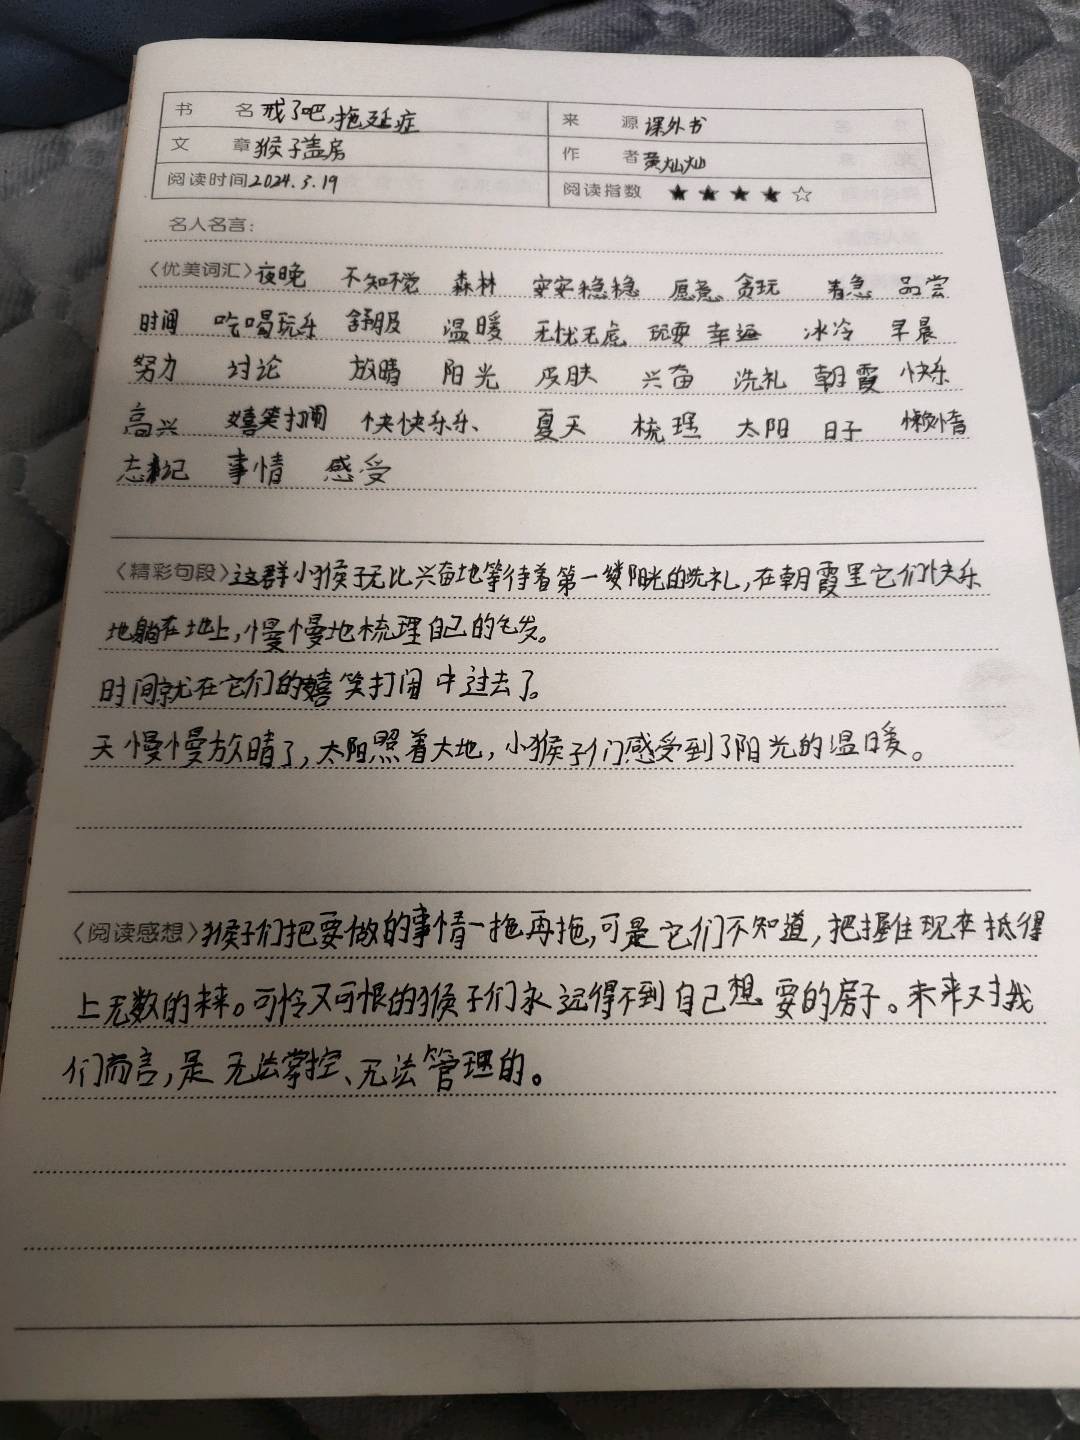 书 名 戒了吧,拖延症 来 源 课外书
文 章 猴子盖房 作 者 黄灿灿
阅读时间 2024.3.19 阅读指数 ★★★★☆
名人名言:
〈优美词汇〉夜晚 不知不觉 森林 安安稳稳 愿意 贪玩 着急 品尝
时间 吃喝玩乐 舒服 温暖 无忧无虑 玩耍 幸运 冰冷 早晨
努力 讨论 放晴 阳光 皮肤 兴奋 洗礼 朝霞 快乐
高兴 嬉笑打闹 快快乐乐、 夏天 梳理 太阳 日子 懒惰
忘记 事情 感受
〈精彩句段〉这群小猴子无比兴奋地等待着第一缕阳光的洗礼,在朝霞里它们快乐
地躺在地上,慢慢地梳理自己的毛发。
时间就在它们的嬉笑打闹中过去了。
天慢慢放晴了,太阳照着大地,小猴子们感受到了阳光的温暖。
〈阅读感想〉猴子们把要做的事情一拖再拖,可是它们不知道,把握住现在抵得
上无数的未来。可怜又可恨的猴子们永远得不到自己想要的房子。未来对我
们而言,是无法掌控、无法管理的。